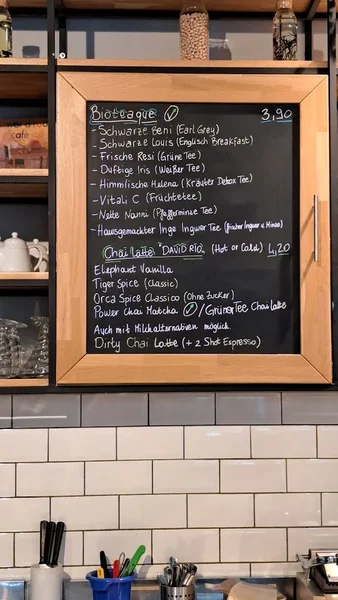 Bioteaque 3,90
- Schwarze Beni (Earl Grey)
- Schwarze Louis (Englisch Breakfast)
- Frische Resi (Grüne Tee)
- Duftige Iris (Weißer Tee)
- Himmlische Helena (Kräuter Detox Tee)
- Vitali C (Früchtetee)
- Nette Nanni (Pfefferminze Tee)
- Hausgemachter Inge Ingwer Tee (frischer Ingwer u. Minze)
Chai Latte "DAVID RIO" (Hot or Cold) 4,20
Elephant Vanilla
Tiger Spice (Classic)
Orca Spice Classico (Ohne Zucker)
Power Chai Matcha / Grüner Tee Chai Latte
Auch mit Milchalternativen möglich
Dirty Chai Latte (+ 2 Shot Espresso)